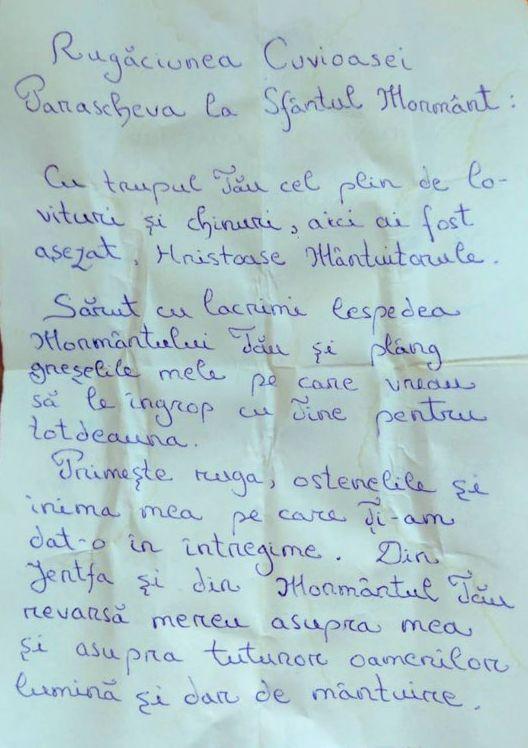 Rugăciunea Cuvioasei
Parascheva la Sfântul Mormânt:
Cu trupul Tău cel plin de lo-
vituri și chinuri, aici ai fost
așezat, Hristoase Mântuitorule.
Sărut cu lacrimi lespedea
Mormântului Tău și plâng
greșelile mele pe care vreau
să le îngrop cu Tine pentru
totdeauna.
Primește ruga, ostenelile și
inima mea pe care Ți-am
dat-o în întregime. Din
Jertfa și din Mormântul Tău
revarsă mereu asupra mea
și asupra tuturor oamenilor
lumină și dar de mântuire.